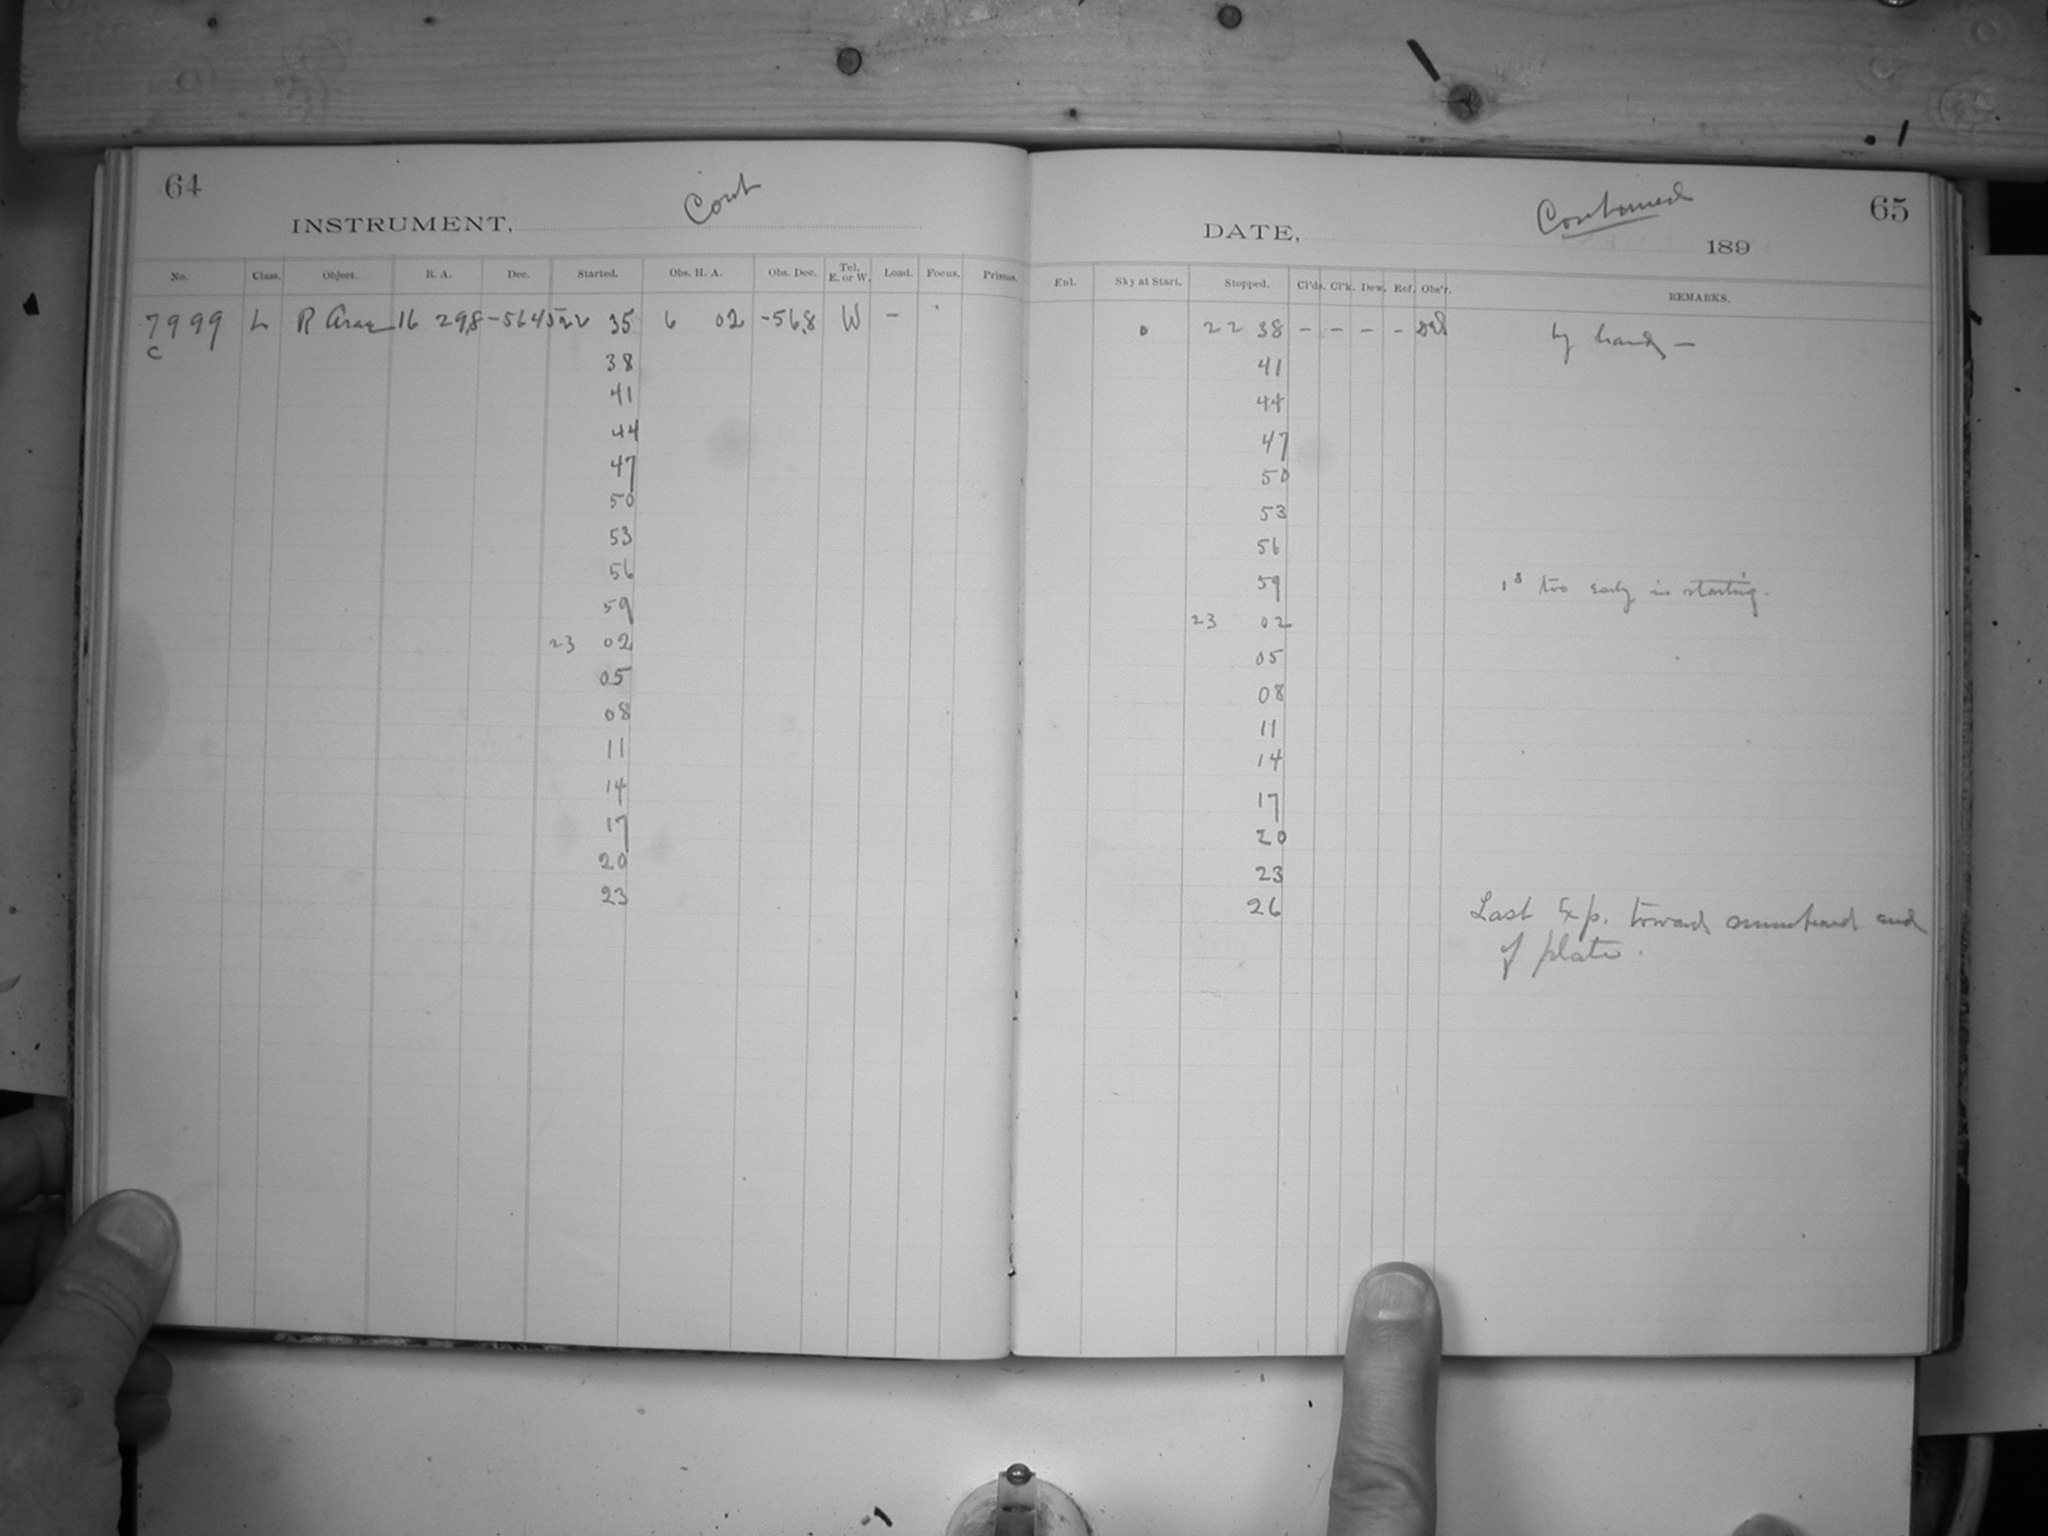 64
Cont
INSTRUMENT,
No. Class. Object. R. A. Dec. Started. Obs. H. A. Obs. Dec. Tel. E. or W. Load. Focus. Prisms.
7999 L R Arae 16 29.8 -56 45 22 35 6 02 -56.8 W -
C
38
41
44
47
50
53
56
59
23 02
05
08
11
14
17
20
23
Continued
65
DATE,
189
Enl. Sky at Start. Stopped. Cl'ds. Cl'k. Dew. Ref. Obs'r. REMARKS.
0 22 38 - - - - by hand -
41
44
47
50
53
56
59 1s too early in starting.
23 02
05
08
11
14
17
20
23
26 Last Exp. toward end
of plate.